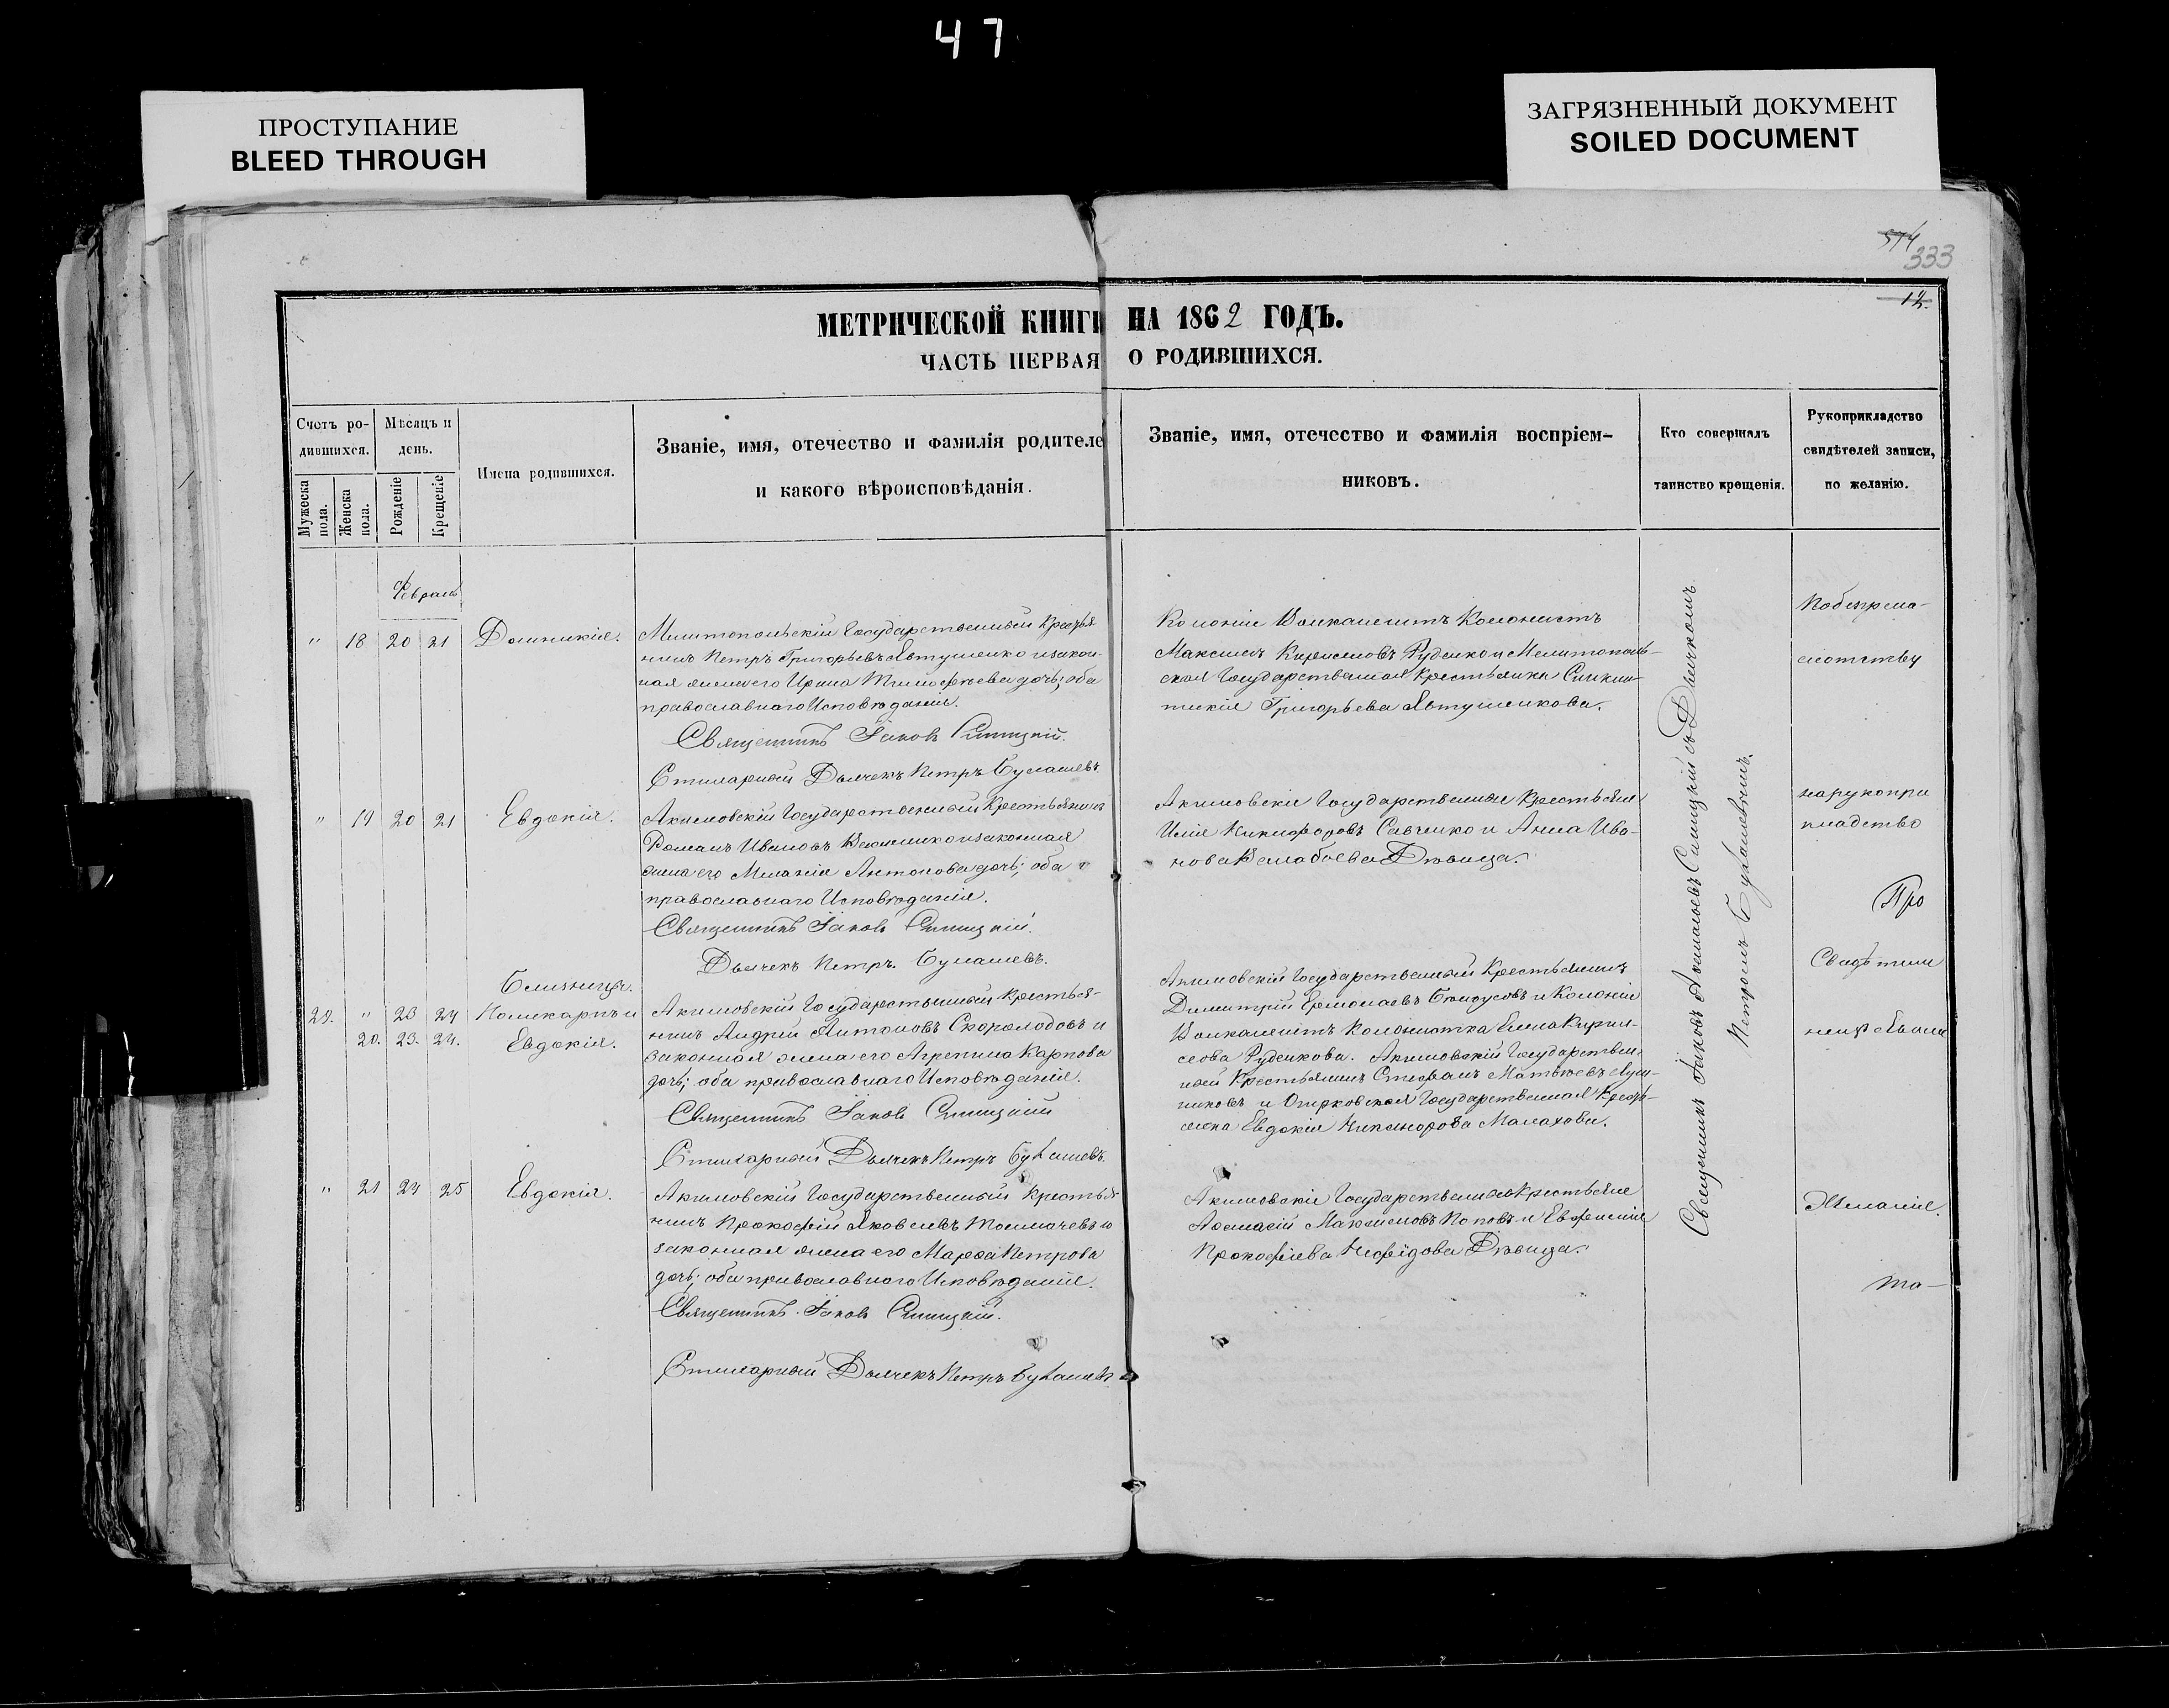 47
ПРОСТУПАНИЕ
BLEED THROUGH
ЗАГРЯЗНЕННЫЙ ДОКУМЕНТ
SOILED DOCUMENT
574
333
12.
МЕТРИЧЕСКОЙ КНИГИ НА 1862 ГОДЪ.
ЧАСТЬ ПЕРВАЯ О РОДИВШИХСЯ.
Счетъ ро-
дившихся.
Мужеска
пола.
Женска
пола.
Мѣсяцъ и
день.
Рожденіе
Крещеніе
Имена родившихся.
Званіе, имя, отечество и фамилія родителе
и какого вѣроисповѣданія.
Званіе, имя, отечество и фамилія воспріем-
никовъ.
Кто совершалъ
таинство крещенія.
Рукоприкладство
свидѣтелей записи,
по желанію.
Февраль
" 18 20 21 Домникія.
Мелитопольскій Государственный Кресть
нинъ Петръ Григорьевъ Явтушенко и закон-
ная жена его Ирина Тимофѣева дочь; оба
православнаго Исповѣданія.
Священникъ Іаковъ Синицкій.
Стихарный Дьячекъ Петръ Булашевъ
Колоніи Колонистъ
Максимъ Кириловъ Руденко и Мелитополь-
ская Государственная Крестьянка
Григорьева Явтушенкова.
" 19 20 21 Евдокія.
Акимовскій Государственный Крестьянинъ
Романъ Ивановъ и законная
жена его Меланія Антонова дочь; оба
православнаго Исповѣданія.
Священникъ Іаковъ Синицкій.
Дьячекъ Петръ Булашевъ.
Акимовскіе Государственные Крестьяне
Илія Никифоровъ Савченко и Анна Ива-
нова Дѣвица.
Близнецы.
29. " 23 24 Поликарпъ и
20. 23. 24. Евдокія.
Акимовскій Государственный Крестья-
нинъ Андрей Антоновъ Скороходовъ и
законная жена его Агрепина Карпова
дочь; оба православнаго Исповѣданія.
Священникъ Іаковъ Синицкій
Стихарный Дьячекъ Петръ Булашевъ.
Акимовскій Государственный Крестьянинъ
Димитрій Ермолаевъ и Колоніи
Колонистка Елена Кирил-
лова Руденкова. Акимовскій Государствен-
ный Крестьянинъ Стефанъ Матвѣевъ
и Государственная Кресть-
янка Евдокія Никанорова Малахова.
" 21 24 25 Евдокія.
Акимовскій Государственный Крестья-
нинъ Прокофій Яковлевъ Толмачевъ и
законная жена его Марѳа Петрова
дочь; оба православнаго Исповѣданія.
Священникъ Іаковъ Синицкій.
Стихарный Дьячекъ Петръ Булашевъ
Акимовскіе Государственные Крестьяне
Аѳанасій Максимовъ Поповъ и Евфимія
Прокофіева Нефідова Дѣвица.
Священникъ Іаковъ Синицкій съ Дьячкомъ
Петромъ Булашевымъ.
По безграмо-
на рукопри
кладство
Про
Свидѣтели
Желанія.